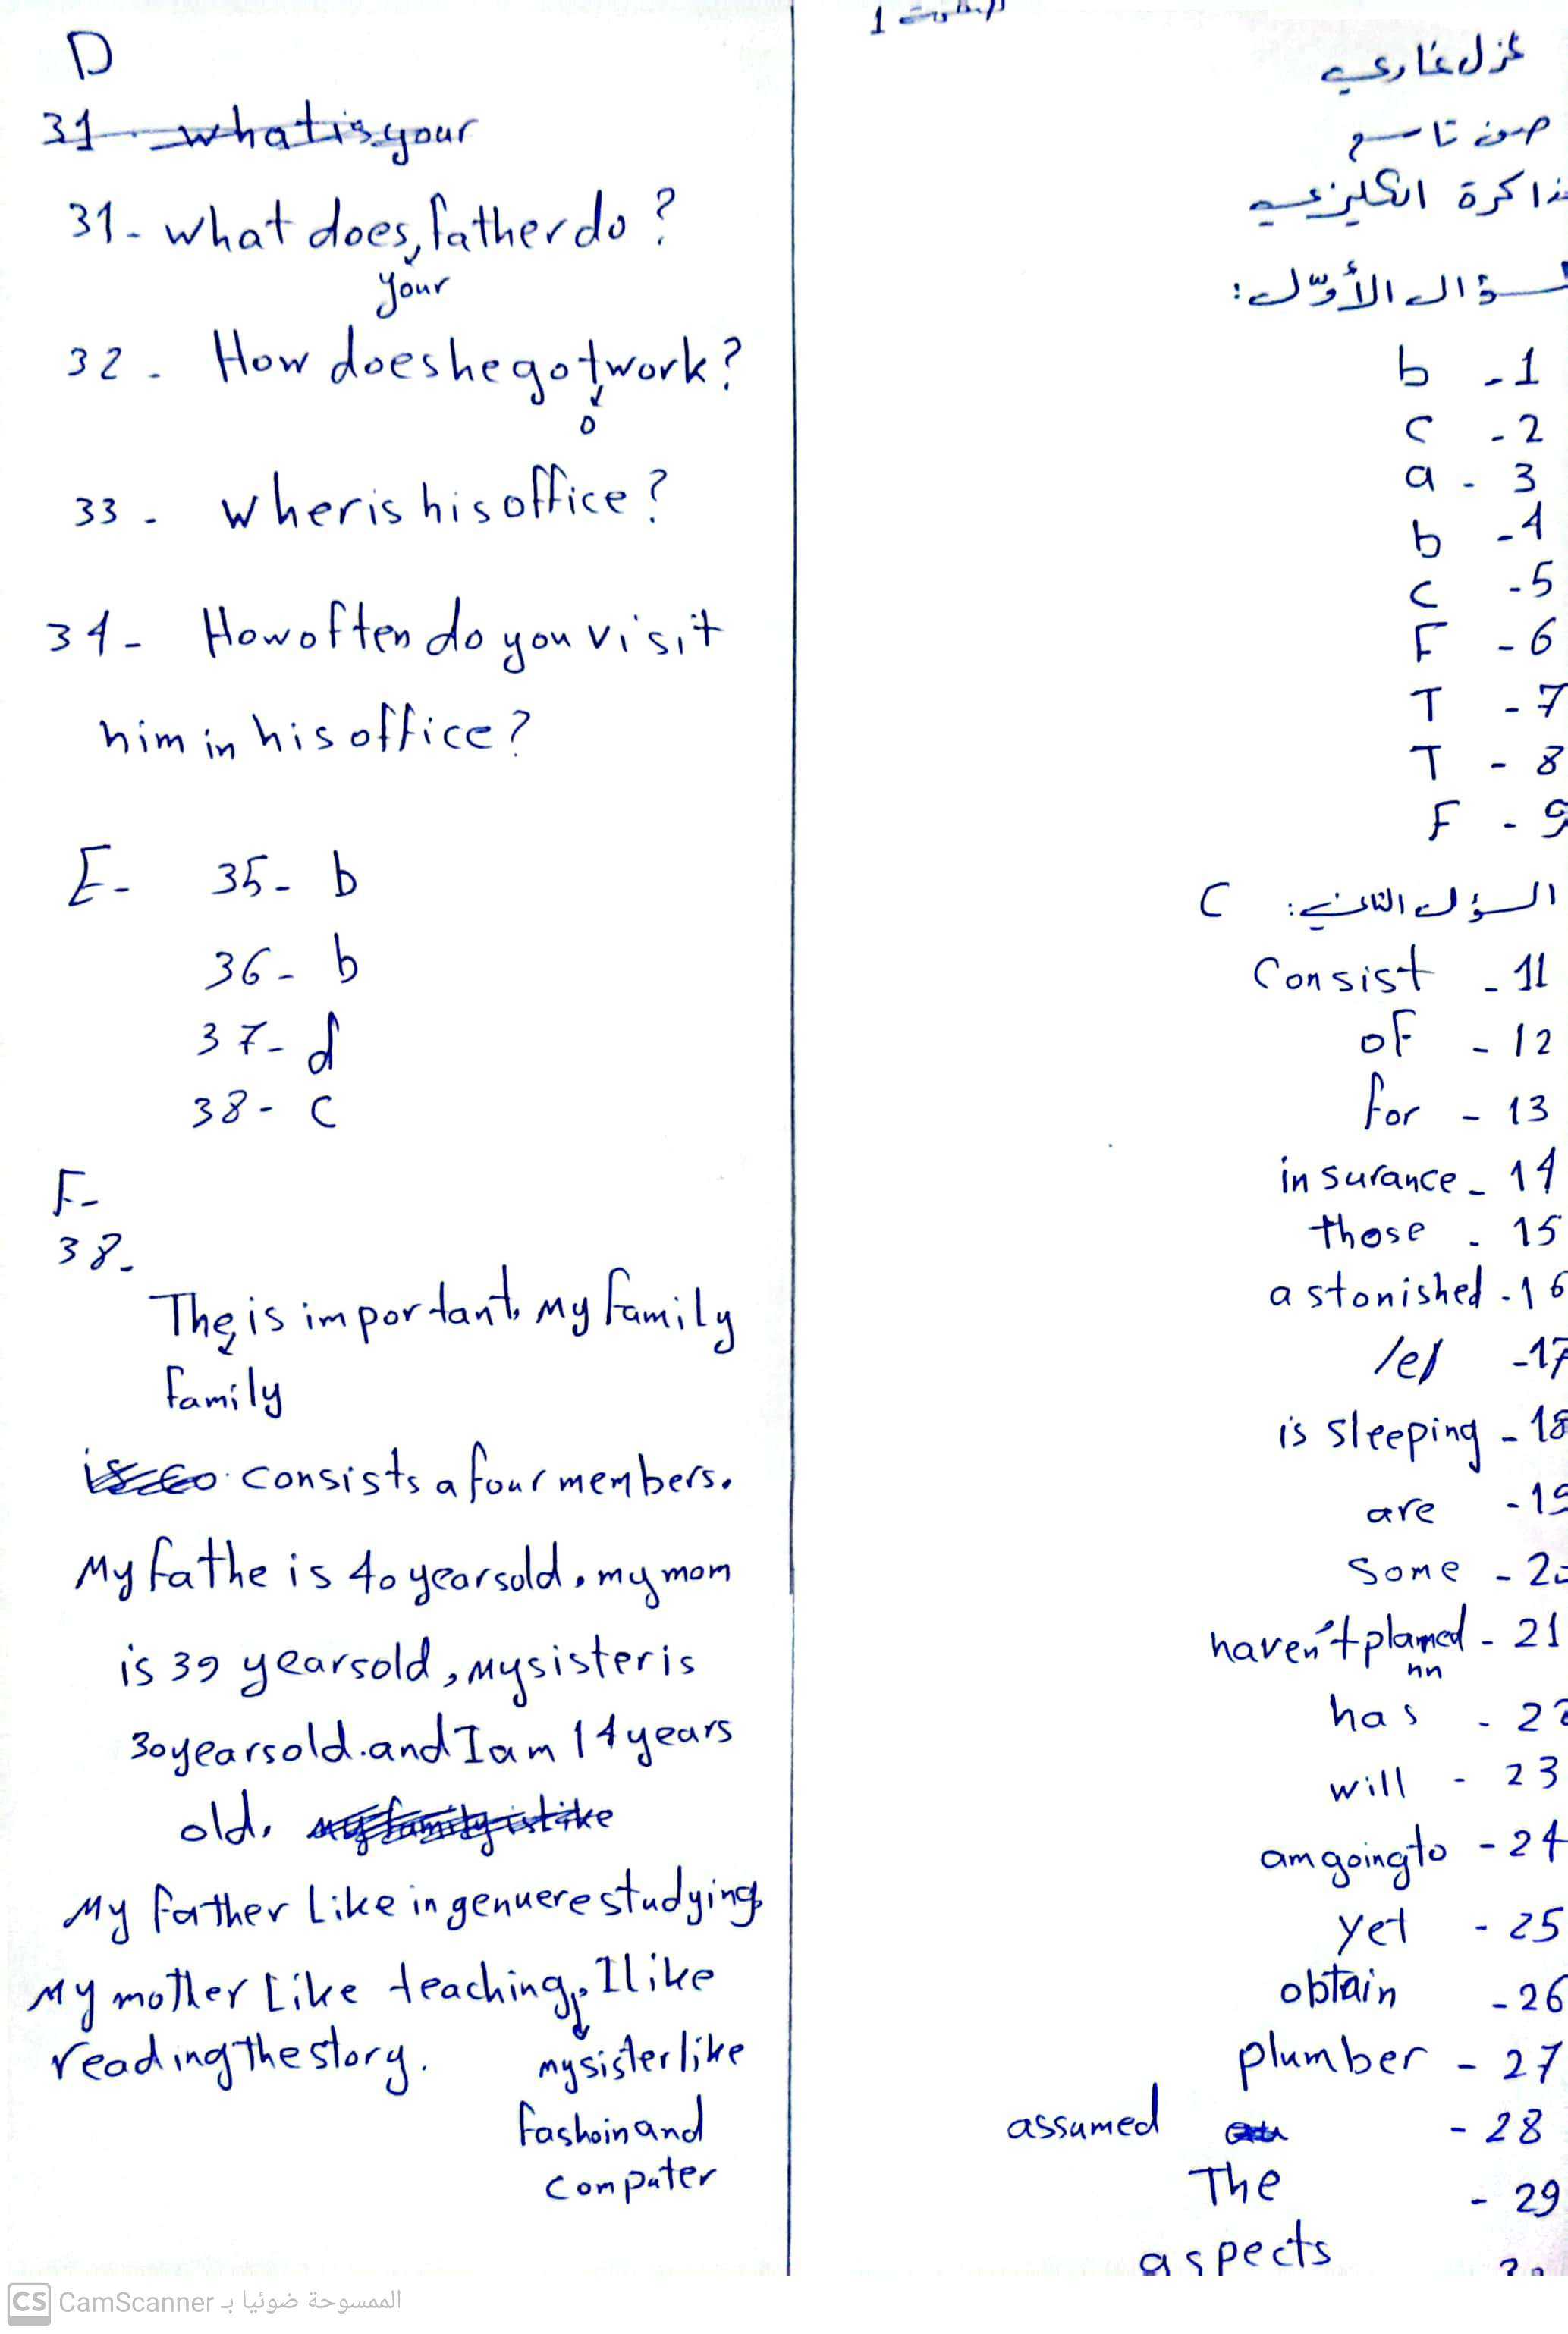 1
غزل غازي
صف تاسع
مذاكرة انكليزي
السؤال الأوّل:
1- b
2- c
3- a
4- b
5- c
6- F
7- T
8- T
9- F
السؤل الثاني: C
11- Consist
12- of
13- for
14- insurance
15- those
16- astonished
17- /e/
18- is sleeping
19- are
20- some
21- haven't planned
nn
22- has
23- will
24- am going to
25- yet
26- obtain
27- plumber
28- assumed
29- The
30 aspects
D
31- what is your
31- what does, father do?
your
32- How does he go t work?
o
33- wher is his office?
34- How often do you visit
him in his office?
E- 35- b
36- b
37- d
38- c
F-
38-
The, is important, My family
family
consists a four members.
My fathe is 40 years old, my mom
is 39 years old, my sister is
30 years old. and I am 14 years
old. my family is like
My father Like ingenuere studying,
My mother Like teaching, I like
reading the story. my sister like
fashoin and
computer
CS CamScanner الممسوحة ضوئيا بـ